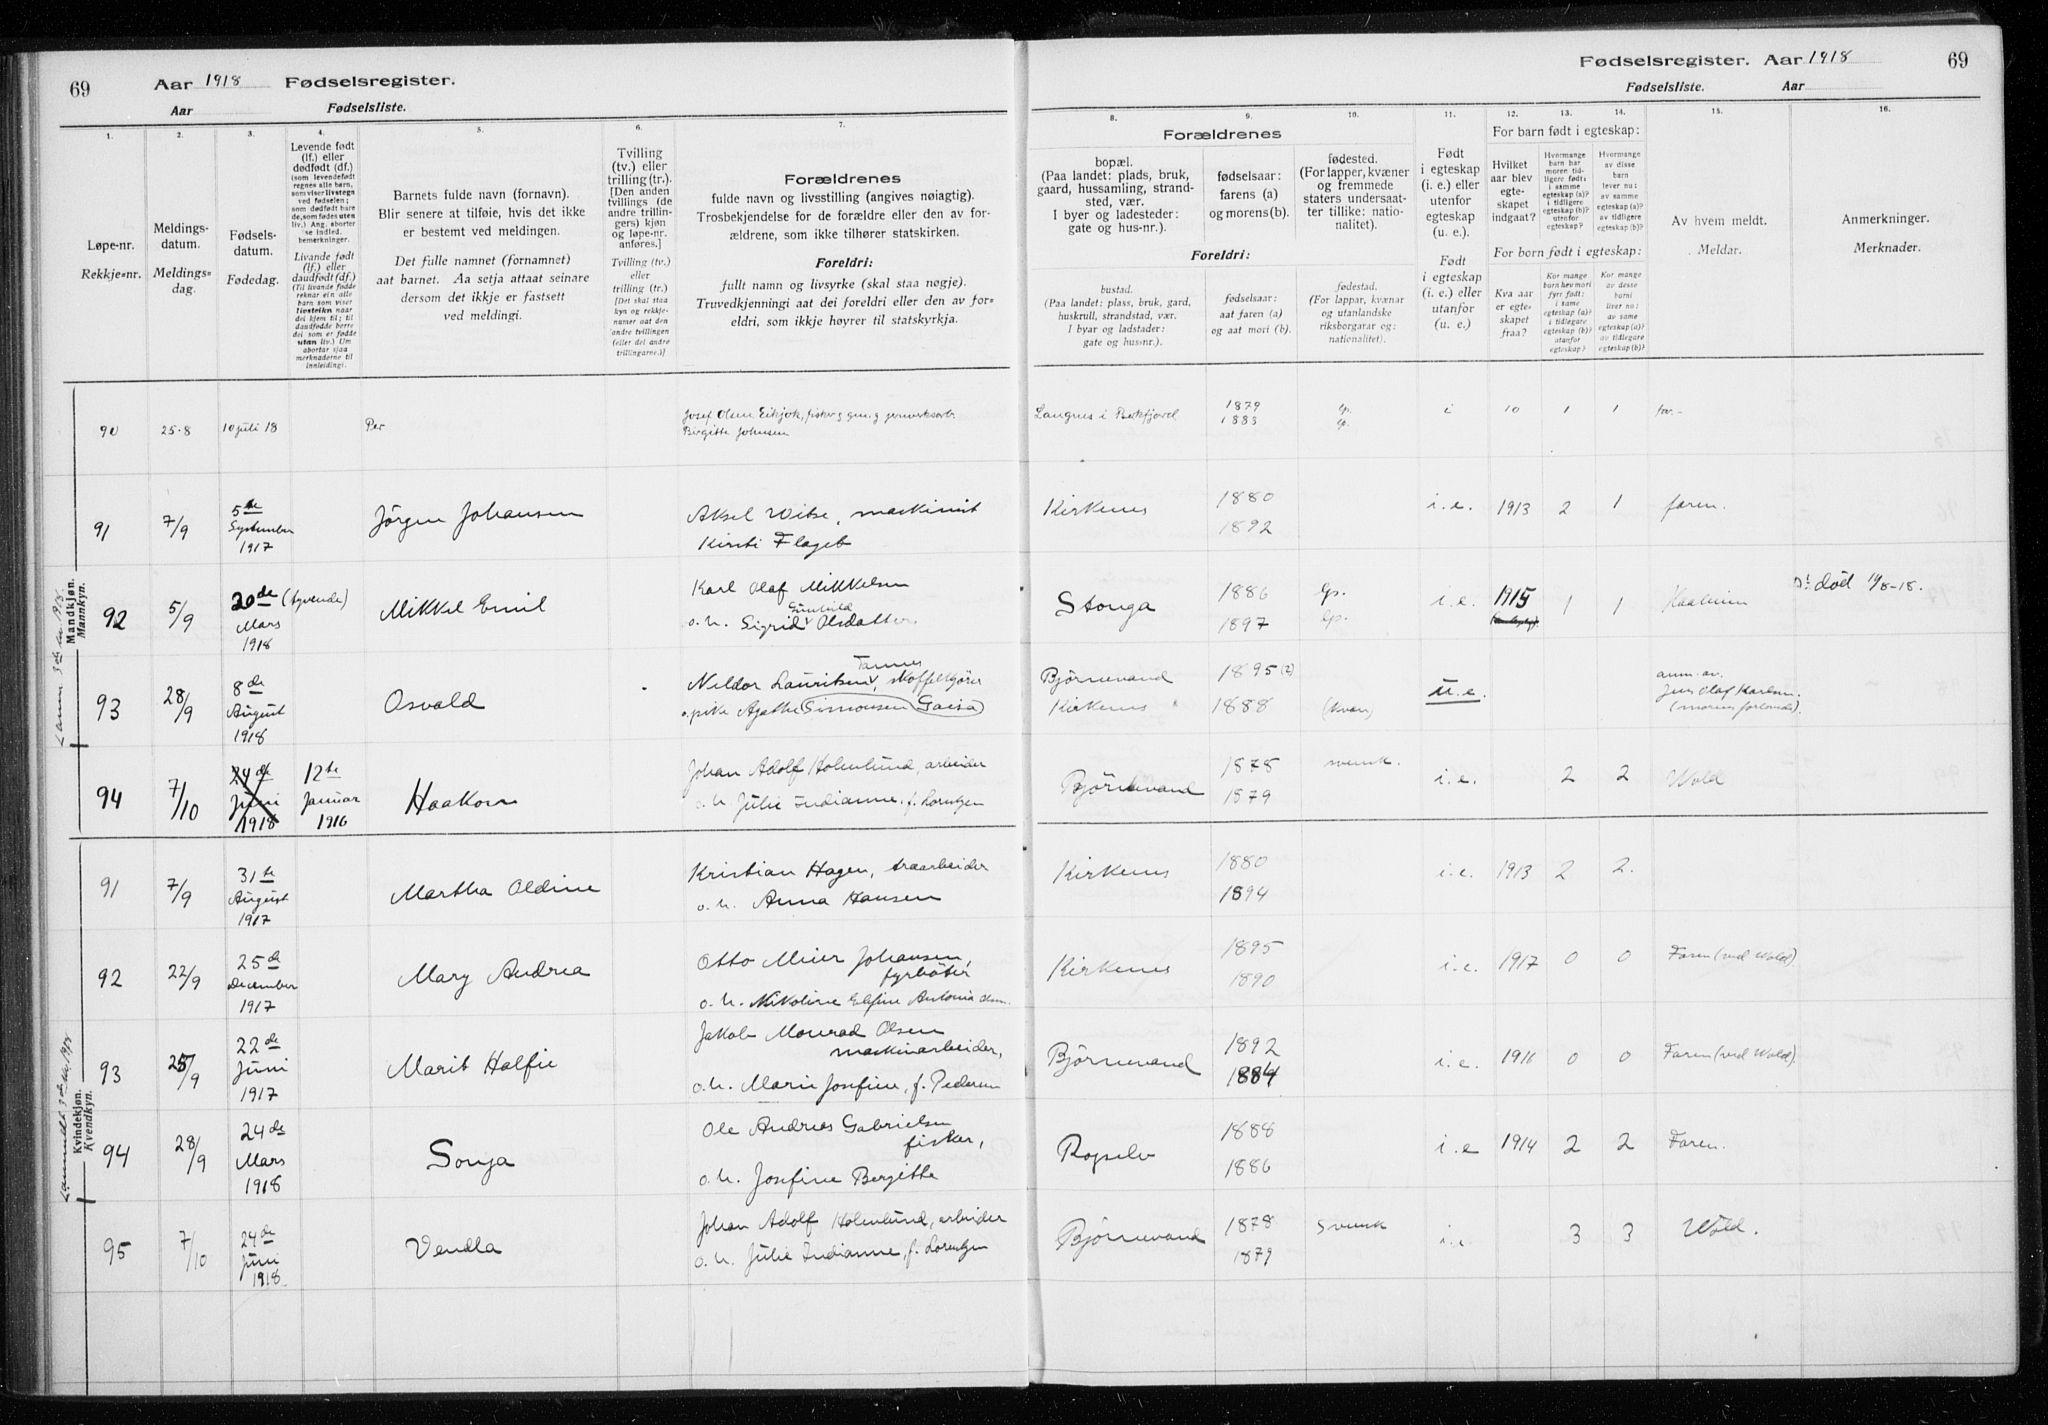 69 Aar 1918 Fødselsregister.
Aar Fødselsliste.
Fødselsregister. Aar 1918 69
Fødselsliste. Aar
1. 2. 3. 4. 5. 6. 7.
8. 9. 10. 11. 12. 13. 14. 15. 16.
Løpe-nr.
Rekkje-nr.
Meldings-
datum.
Meldings-
dag.
Fødsels-
datum.
Fødedag.
Levende født
(lf.) eller
dødfødt (df.)
(som levendefødt
regnes alle barn,
som viser livstegn
ved fødselen;
som dødfødt bare
de, som fødes uten
liv.) Ang. aborter
se indled.
bemerkninger.
Livande født
(lf.) eller
daudfødt (df.)
(Til livande fødde
reknar ein alle
barn som viser
livsteikn naar
dei kjem til; til
daudfødde berre
dei som er fødde
utan liv.) Um
abortar sjaa
merknaderne til
innleiding).
Barnets fulde navn (fornavn).
Blir senere at tilføie, hvis det ikke
er bestemt ved meldingen.
Det fulle namnet (fornamnet)
aat barnet. Aa setja attaat seinare
dersom det ikkje er fastsett
ved meldingi.
Tvilling
(tv.) eller
trilling (tr.).
[Den anden
tvillings (de
andre trillin-
gers) kjøn
og løpe-nr.
anføres.]
Tvilling (tv.)
eller
trilling (tr.)
[Det skal staa
kyn og rekkje-
numer aat den
andre tvillingen
(eller dei andre
trillingarne.)]
Forældrenes
fulde navn og livsstilling (angives nøiagtig).
Trosbekjendelse for de forældre eller den av for-
ældrene, som ikke tilhører statskirken.
Foreldri:
fullt namn og livsyrke (skal staa nøgje).
Truvedkjenningi aat dei foreldri eller den av for-
eldri, som ikkje høyrer til statskyrkja.
Forældrenes
bopæl.
(Paa landet: plads, bruk,
gaard, hussamling, strand-
sted, vær.
I byer og ladesteder:
gate og hus-nr.).
fødselsaar:
farens (a)
og morens (b).
fødested.
(For lapper, kvæner
og fremmede
staters undersaat-
ter tillike: natio-
nalitet).
Foreldri:
bustad.
(Paa landet: plass, bruk, gard,
huskrull, strandstad, vær.
I byar og ladstader:
gate og hus-nr.).
fødselsaar:
aat faren (a)
og aat mori (b).
fødestad.
(For lappar, kvænar
og utanlandske
riksborgarar og:
nationalitet).
Født
i egteskap
(i. e.) eller
utenfor
egteskap
(u. e.).
Født
i egteskap
(i. e.) eller
utanfor
egteskap
(u. e.)
For barn født i egteskap:
Hvilket
aar blev
egte-
skapet
indgaat?
Hvormange
barn har
moren tid-
ligere født:
i samme
egteskap (a)?
i tidligere
egteskap (b)?
utenfor
egteskap?
Hvormange
av disse
barn
lever nu:
av samme
egteskap (a)?
av tidligere
egteskap (b)?
For born født i egteskap:
Kva aar
er egte-
skapet
fraa?
Kor mange
barn hev mori
fyrr født:
i same
egteskap (a)?
i tidlegare
egteskap (b)?
utanfor
egteskap?
Kor mange
av desse
borni
liver no:
av same
egteskap (a)?
av tidlegare
egteskap (b)?
Av hvem meldt.
Meldar.
Anmerkninger.
Merknader.
Mandkjøn.
Mankyn.
90 25-8 10 juli 18 Per Josef Olsen Eikjok, fisker
Birgitte Johnsen
Langnes i Bøkfjord 1879 lp. i 10 1 1 far.-
1883 lp.
91 7/9 5te September 1917 Jörgen Johansen Aksel Witse, maskinist
Kirsti Flaget
Kirkenes 1880 i.e. 1913 2 1 faren.
1892
92 5/9 20de (tyvende) Mars 1918 Mikkel Emil Karl Olaf Mikkelsen
o.h. Sigrid Gunhild Olsdatter
Stonga 1886 lp. i.e. 1915 1 1 død 19/8-18.
1897 lp.
93 28/9 8de August 1918 Osvald Nildor Lauritsen Tannes, skoffelkjører
o. pike Agathe Simonsen Gaisa
Bjørnevand 1895 (?) u.e. anm. av. Jens Olaf Karlsen
Kirkenes 1888 (kvæn) (morens forlovede).
94 7/10 24de Juni 1918 12te Januar 1916 Haakon Johan Adolf Holmlund, arbeider
o. h. Julie Indianne f. Lorntzen
Bjørnevand 1878 svensk. i.e. 2 2 Wold
1879
Kvindekjøn.
Kvendkyn.
91 7/9 31te August 1917 Martha Oldine Kristian Hagen, traarbeider
o. h. Anna Hansen
Kirkenes 1880 i.e. 1913 2 2.
1894
92 22/9 25de December 1917 Mary Andrea Otto Meier Johansen,
fyrböter
o. h. Nikoline Elfine Antonia
Kirkenes 1895 i.e. 1917 0 0 Faren (ved Wold)
1890
93 25/9 22de Juni 1917 Marit Halfie Jakob Monrad Olsen
maskinarbeider,
o. h. Marie Josefine, f. Pedersen
Bjørnevand 1892 i.e. 1916 0 0 Faren (ved Wold).
1884
94 28/9 24de Mars 1918 Sonja Ole Andreas Gabrielsen
fisker,
o. h. Josefine Bergitte
Ropelv 1888 i.e 1914 2 2 Faren.
1886
95 7/10 24de Juni 1918 Vendla Johan Adolf Holmlund, arbeider
o. h. Julie Indianne, f. Lorentzen
Bjørnevand 1878 Svensk i.e. 3 3 Wold.
1879